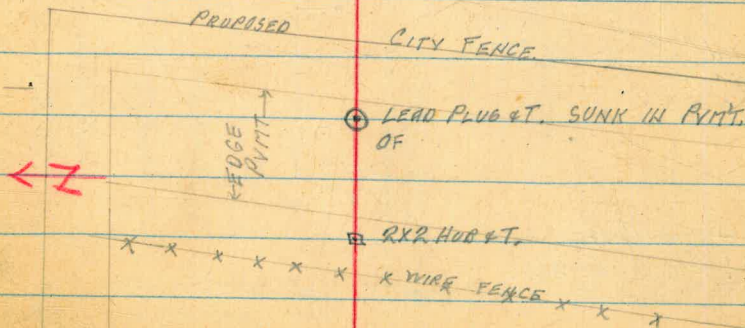 PROPOSED CITY FENCE.
LEAD PLUG & T. SUNK IN PVMT.
OF
←EDGE
PVMT→
N
2X2 HUB & T.
X X X X X X X WIRE FENCE X X X